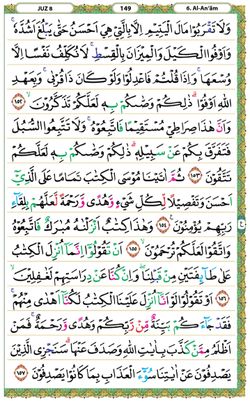 JUZ 8 149 6. Al-An'ām
وَلَا تَقْرَبُوْا مَالَ الْيَتِيْمِ اِلَّا بِالَّتِيْ هِيَ اَحْسَنُ حَتّٰى يَبْلُغَ اَشُدَّهٗ ۚ
وَاَوْفُوا الْكَيْلَ وَالْمِيْزَانَ بِالْقِسْطِ ۚ لَا نُكَلِّفُ نَفْسًا اِلَّا
وُسْعَهَا ۚ وَاِذَا قُلْتُمْ فَاعْدِلُوْا وَلَوْ كَانَ ذَا قُرْبٰى ۚ وَبِعَهْدِ
اللّٰهِ اَوْفُوْا ؕ ذٰلِكُمْ وَصّٰكُمْ بِهٖ لَعَلَّكُمْ تَذَكَّرُوْنَ ۙ ١٥٢
وَاَنَّ هٰذَا صِرَاطِيْ مُسْتَقِيْمًا فَاتَّبِعُوْهُ ۚ وَلَا تَتَّبِعُوا السُّبُلَ
فَتَفَرَّقَ بِكُمْ عَنْ سَبِيْلِهٖ ؕ ذٰلِكُمْ وَصّٰكُمْ بِهٖ لَعَلَّكُمْ
تَتَّقُوْنَ ١٥٣ ثُمَّ اٰتَيْنَا مُوْسَى الْكِتٰبَ تَمَامًا عَلَى الَّذِيْٓ
اَحْسَنَ وَتَفْصِيْلًا لِّكُلِّ شَيْءٍ وَّهُدًى وَّرَحْمَةً لَّعَلَّهُمْ بِلِقَآءِ
رَبِّهِمْ يُؤْمِنُوْنَ ١٥٤ وَهٰذَا كِتٰبٌ اَنْزَلْنٰهُ مُبٰرَكٌ فَاتَّبِعُوْهُ
وَاتَّقُوْا لَعَلَّكُمْ تُرْحَمُوْنَ ۙ ١٥٥ اَنْ تَقُوْلُوْٓا اِنَّمَآ اُنْزِلَ الْكِتٰبُ
عَلٰى طَآئِفَتَيْنِ مِنْ قَبْلِنَا ۪ وَاِنْ كُنَّا عَنْ دِرَاسَتِهِمْ لَغٰفِلِيْنَ ۙ
١٥٦ اَوْ تَقُوْلُوْا لَوْ اَنَّآ اُنْزِلَ عَلَيْنَا الْكِتٰبُ لَكُنَّآ اَهْدٰى مِنْهُمْ ۚ
فَقَدْ جَآءَكُمْ بَيِّنَةٌ مِّنْ رَّبِّكُمْ وَهُدًى وَّرَحْمَةٌ ۚ فَمَنْ
اَظْلَمُ مِمَّنْ كَذَّبَ بِاٰيٰتِ اللّٰهِ وَصَدَفَ عَنْهَا ؕ سَنَجْزِى الَّذِيْنَ
يَصْدِفُوْنَ عَنْ اٰيٰتِنَا سُوْٓءَ الْعَذَابِ بِمَا كَانُوْا يَصْدِفُوْنَ ١٥٧